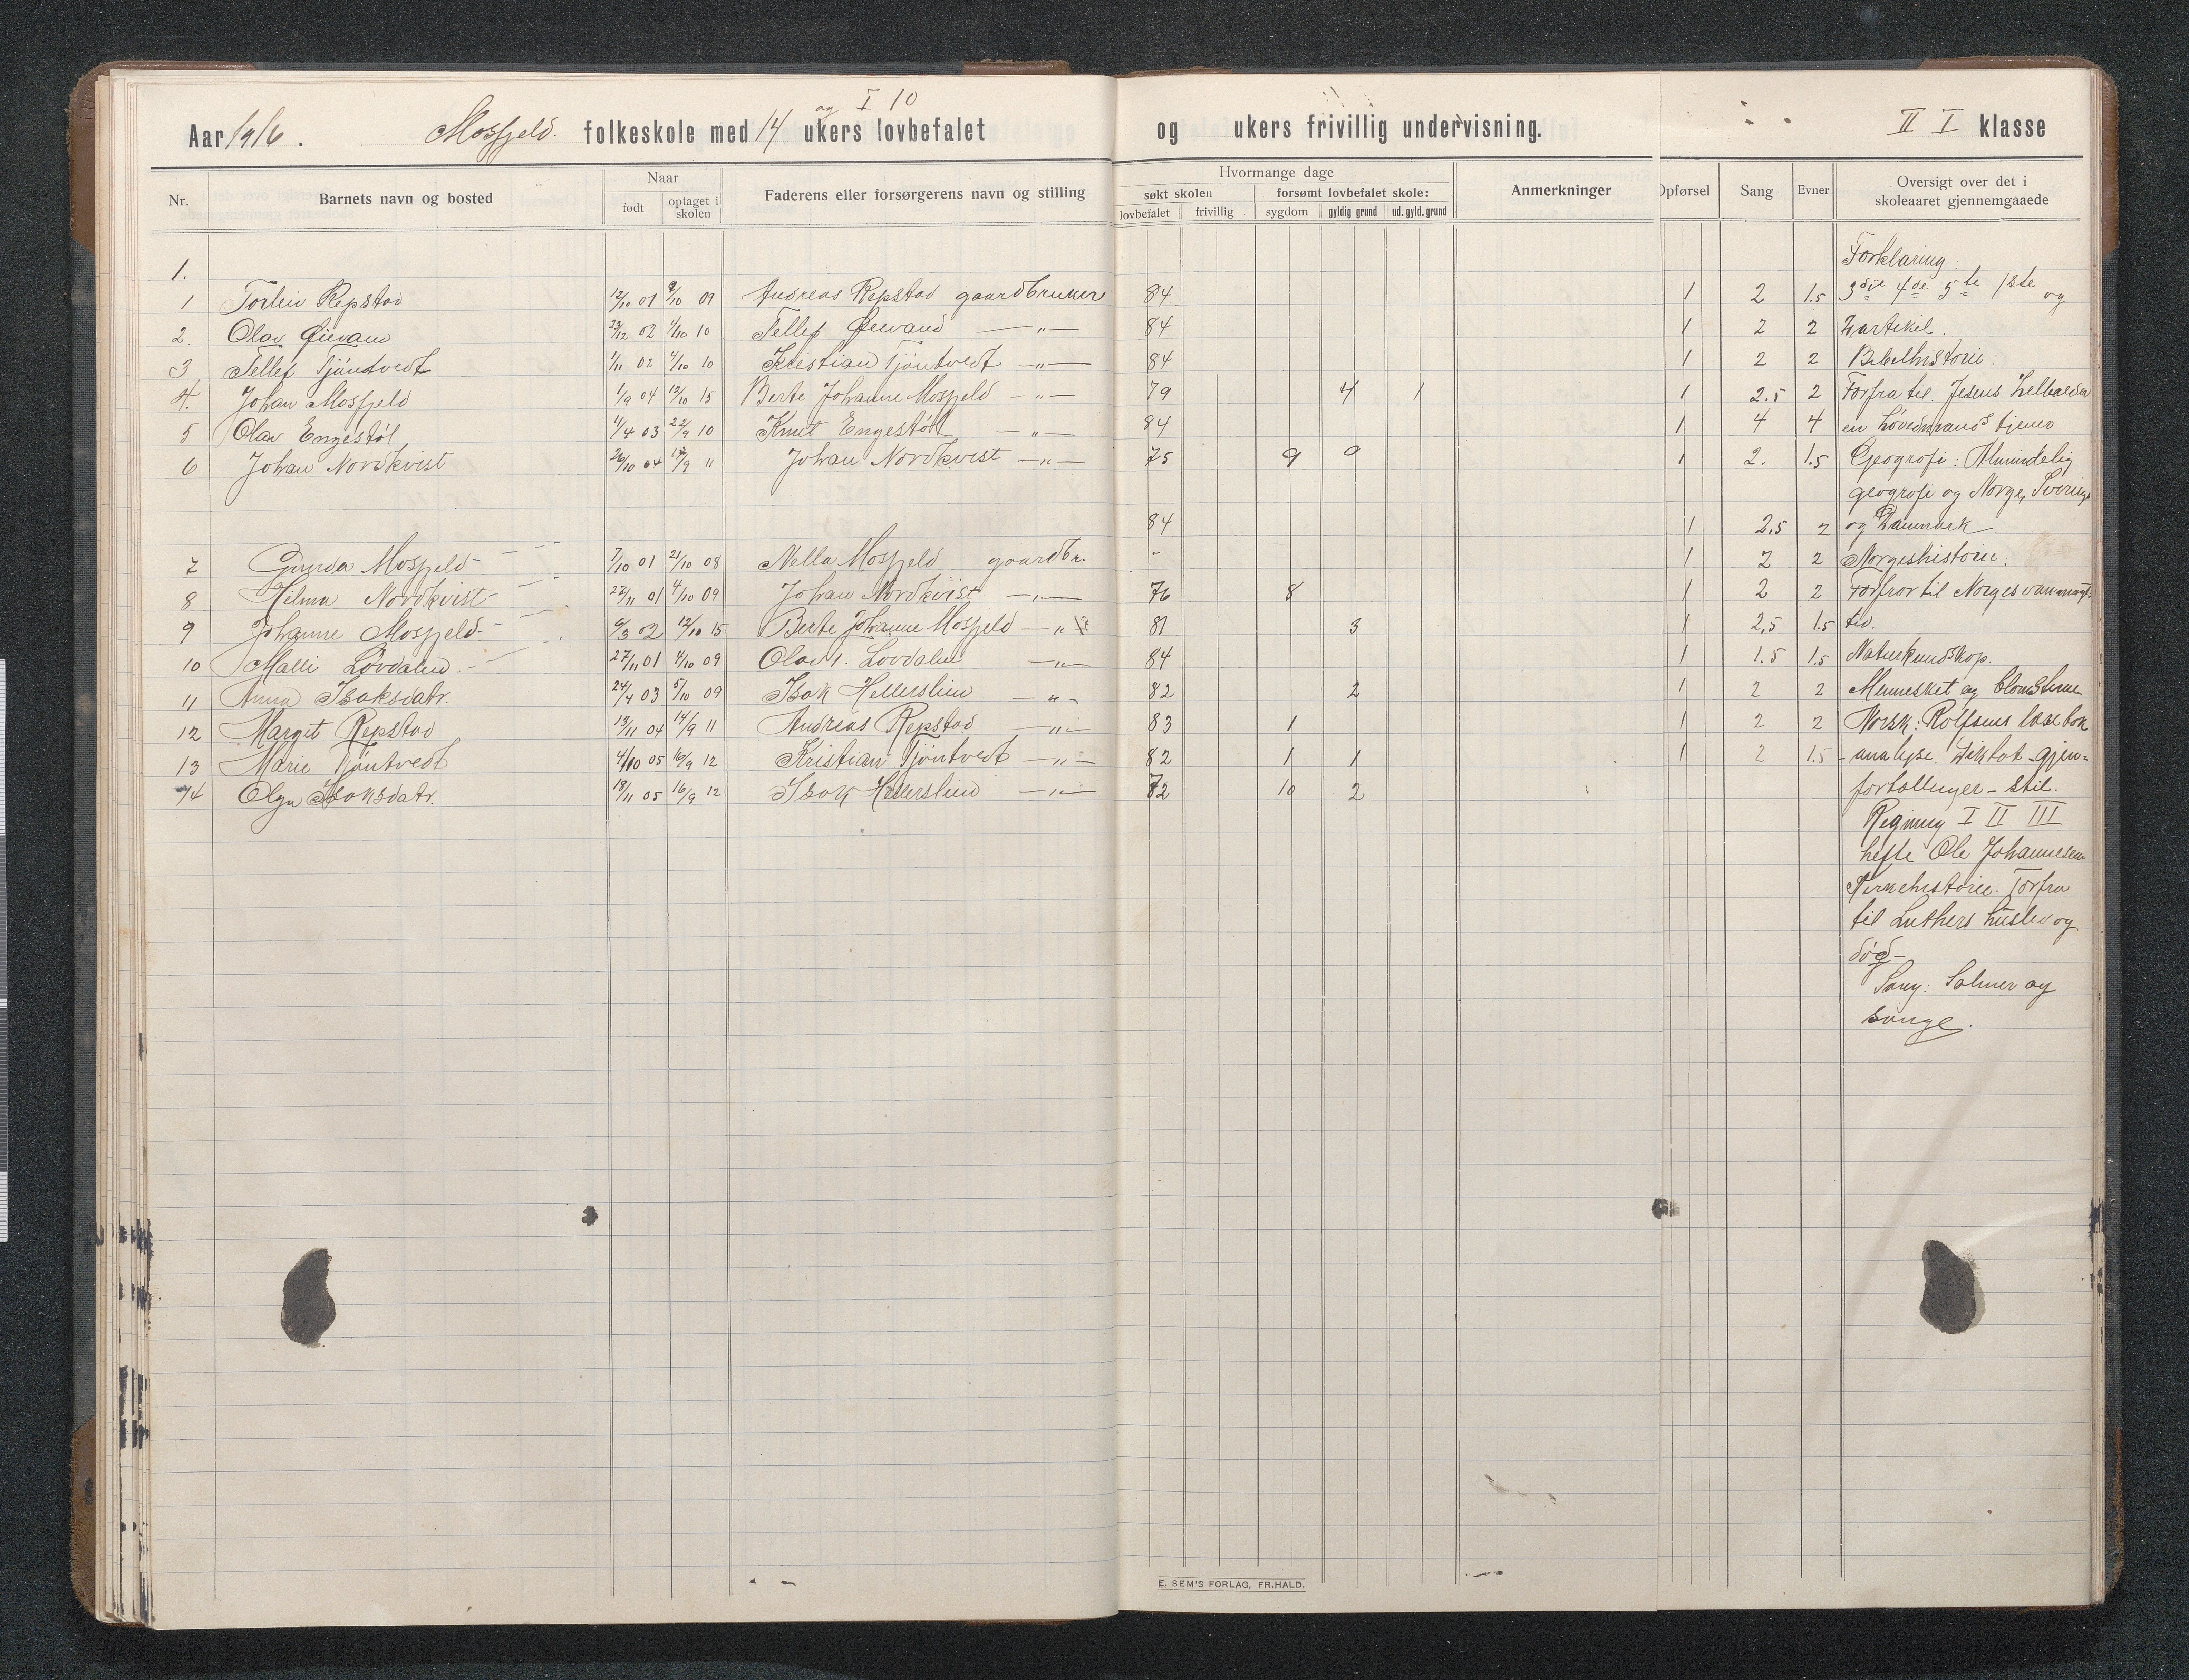 og I 10
Aar 1916. Mosfjeld. folkeskole med 14 ukers lovbefalet og ukers frivillig undervisning. II I klasse
Nr. Barnets navn og bosted Naar Faderens eller forsørgerens navn og stilling Hvormange dage Anmerkninger Opførsel Sang Evner Oversigt over det i skoleaaret gjennemgaaede
født optaget i skolen søkt skolen forsømt lovbefalet skole:
lovbefalet frivillig sygdom gyldig grund ud. gyld. grund
1. Forklaring.
1 Torleiv Repstad 12/10 01 9/10 09 Andreas Repstad gaardbruker 84 1 2 1.5 3die 4de 5te 1ste og
2. Olav Øievand 23/12 02 4/10 10 Tellef Øievand —"— 84 1 2 2 2 artikel.
3 Tellef Tjøntvedt 1/11 02 4/10 10 Kristian Tjøntvedt —"— 84 1 2 2 Bibelhistorie.
4. Johan Mosfjeld 1/9 04 12/10 15 Berte Johanne Mosfjeld —"— 79 4 1 1 2.5 2 Forfra til Jesus helbreder
5 Olav Engestøl 11/4 03 22/9 10 Knut Engestøl —"— 84 1 4 4 en høvedsmands tjener
6 Johan Nordkvist 26/10 04 14/9 11 Johan Nordkvist —"— 75 9 9 1 2. 1.5 Geografi: Almindelig
geografi og Norge, Sverige
84 1 2,5 2 og Danmark
7 Gunda Mosfjeld 7/10 01 21/10 08 Nella Mosfjeld gaardbr. - 1 2 2 Norgeshistorie.
8 Hilma Nordkvist 22/11 01 4/10 09 Johan Nordkvist —"— 76 8 1 2 2 Forfra til Norges vanmagts
9 Johanne Mosfjeld 6/3 02 12/10 15 Berte Johanne Mosfjeld —"— 81 3 1 2,5 1.5 tid.
10 Malli Løvdalen 27/11 01 4/10 09 Olav Løvdalen —"— 84 1 1.5 1.5 Naturkundskap.
11 Anna Isaksdatr. 24/4 03 5/10 09 Isak Hellerslien —"— 82 2 1 2 2 Mennesket og blomsterne
12 Margit Repstad 13/11 04 14/9 11 Andreas Repstad —"— 83 1 1 2 2 Norsk: Rolfsens læsebok
13 Marie Tjøntvedt 4/10 05 16/9 12 Kristian Tjøntvedt —"— 82 1 1 1 2 1.5 -analyse. Diktat - gjen=
14 Olga Isaksdatr. 18/11 05 16/9 12 Isak Hellerslien —"— 72 10 2 fortællinger - stil.
Regning I II III
hefte Ole Johannesen
Kirkehistorie. Forfra
til Luthers husliv og
død-
Sang: Salmer og
sange.
E. SEM'S FORLAG, FR.HALD.